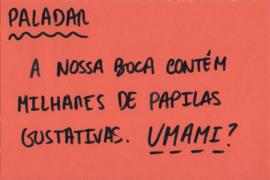 PALADAR
A NOSSA BOCA CONTÉM
MILHARES DE PAPILAS
GUSTATIVAS. UMAMI?